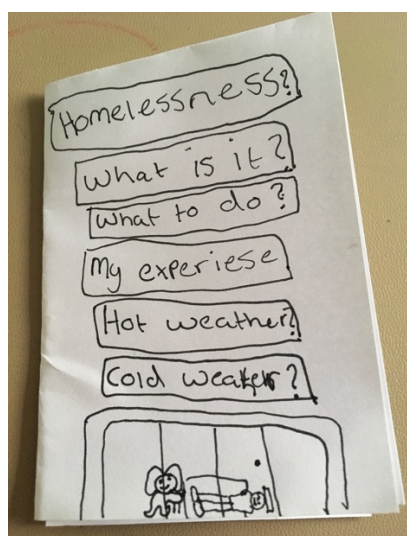 Homelessness?
What is it?
What to do?
My experiese
Hot weather?
Cold weater?